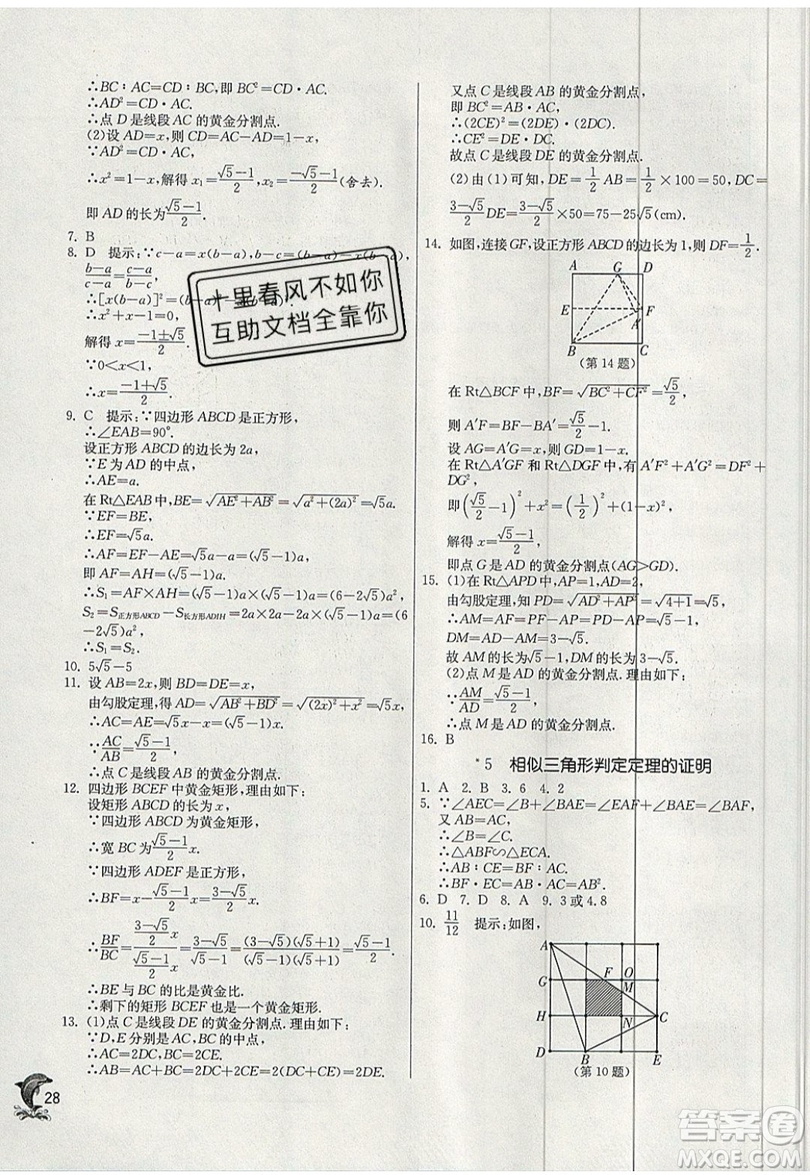 ∴BC∶AC=CD∶BC,即 BC²=CD·AC.
∴AD²=CD·AC.
∴点 D 是线段 AC 的黄金分割点.
(2)设 AD=x,则 CD=AC-AD=1-x,
∵AD²=CD·AC,
∴x²=1-x,解得 x₁=(√5-1)/2,x₂=(-√5-1)/2(舍去).
即 AD 的长为(√5-1)/2.
7. B
8. D 提示:∵c-a=x(b-a),b-c=
(b-a)/(c-a)=(c-a)/(b-a)
∴[x(b-a)]²=
∴x²+x-1=0,
解得 x=(-1±√5)/2.
∵0<x<1,
∴x=(-1+√5)/2.
9. C 提示:∵四边形 ABCD 是正方形,
∴∠EAB=90°.
设正方形 ABCD 的边长为 2a,
∵E 为 AD 的中点,
∴AE=a.
在 Rt△EAB 中,BE=√(AE²+AB²)=√(a²+(2a)²)=√5a.
∵EF=BE,
∴EF=√5a.
∴AF=EF-AE=√5a-a=(√5-1)a,
即 AF=AH=(√5-1)a.
∴S₁=AF×AH=(√5-1)a×(√5-1)a=(6-2√5)a²,
S₂=S正方形ABCD-S长方形ADIH=2a×2a-2a×(√5-1)a=(6
-2√5)a²,
∴S₁=S₂.
10. 5√5-5
11. 设 AB=2x,则 BD=DE=x,
由勾股定理,得 AD=√(AB²+BD²)=√((2x)²+x²)=√5x,
∴AC=AE=√5x-x=(√5-1)x.
∵AC/AB=(√5-1)/2,
∴点 C 是线段 AB 的黄金分割点.
12. 四边形 BCEF 中黄金矩形,理由如下:
设矩形 ABCD 的长为 x,
∵四边形 ABCD 为黄金矩形,
∴宽 BC 为(√5-1)/2 x.
∵四边形 ADEF 是正方形,
∴BF=x-(√5-1)/2 x=(3-√5)/2 x,
∴BF/BC=((3-√5)/2 x)/((√5-1)/2 x)=(3-√5)/(√5-1)=(3-√5)(√5+1)/(√5-1)(√5+1)=(√5-1)/2.
∴BE 与 BC 的比是黄金比.
∴剩下的矩形 BCEF 也是一个黄金矩形.
13. (1)点 C 是线段 DE 的黄金分割点.理由如下:
∵D,E 分别是 AC,BC 的中点,
∴AC=2DC,BC=2CE.
∴AB=AC+BC=2DC+2CE=2DE.
28
又点 C 是线段 AB 的黄金分割点,
即 BC²=AB·AC,
∴(2CE)²=(2DE)·(2DC).
∴CE²=DE·DC.
故点 C 是线段 DE 的黄金分割点.
(2)由(1)可知,DE=1/2 AB=1/2×100=50,DC=
(3-√5)/2 DE=(3-√5)/2×50=75-25√5(cm).
14. 如图,连接 GF,设正方形 ABCD 的边长为 1,则 DF=1/2.
A G D
E F
A′
B C
(第 14 题)
在 Rt△BCF 中,BF=√(BC²+CF²)=√5/2,
则 A′F=BF-BA′=√5/2-1.
设 AG=A′G=x,则 GD=1-x.
在 Rt△A′GF 和 Rt△DGF 中,有 A′F²+A′G²=DF²+
DG²,
即(√5/2-1)²+x²=(1/2)²+(1-x)²,
解得 x=(√5-1)/2,
即点 G 是 AD 的黄金分割点(AG>GD).
15. (1)在 Rt△APD 中,AP=1,AD=2,
由勾股定理,知 PD=√(AD²+AP²)=√(4+1)=√5,
∴AM=AF=PF-AP=PD-AP=√5-1,
DM=AD-AM=3-√5.
故 AM 的长为√5-1,DM 的长为 3-√5.
(2)点 M 是 AD 的黄金分割点.理由如下:
∵AM/AD=(√5-1)/2,
∴点 M 是 AD 的黄金分割点.
16. B
*5 相似三角形判定定理的证明
1. A 2. B 3. 6 4. 2
5. ∵∠AEC=∠B+∠BAE=∠EAF+∠BAE=∠BAF,
又 AB=AC,
∴∠B=∠C.
∴△ABF∽△ECA.
∴AB∶CE=BF∶AC.
∴BF·EC=AB·AC=AB².
6. D 7. D 8. A 9. 3 或 4.8
10. 11/12 提示:如图,
A
G F O
M
H N C
D B E
(第 10 题)
十里春风不如你
互助文档全靠你
答案圈
MXQE.COM